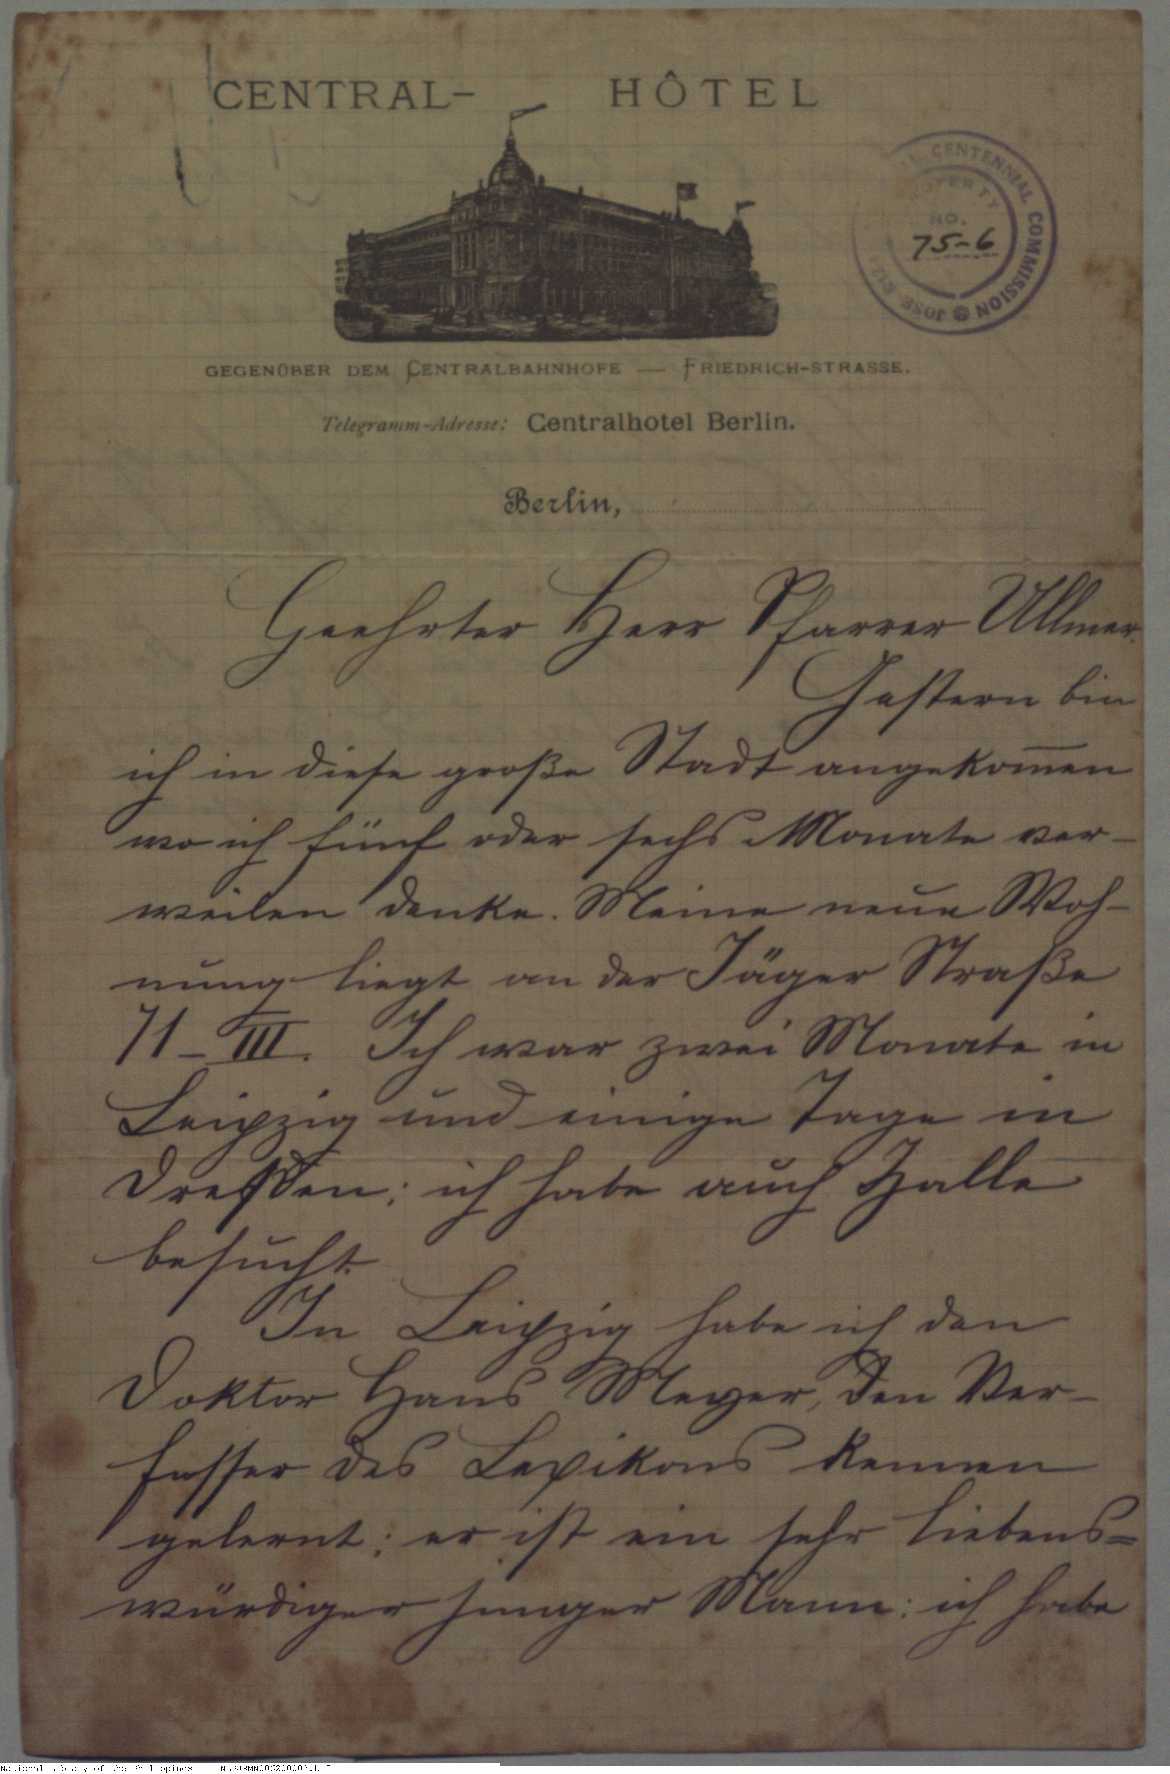 CENTRAL- HÔTEL
CENTENNIAL COMMISSION
JOSE
NO.
75-6
GEGENÜBER DEM CENTRALBAHNHOFE — FRIEDRICH-STRASSE.
Telegramm-Adresse: Centralhotel Berlin.
Berlin,
Geehrter Herr Pfarrer Ullmer.
Gestern bin
ich in diese große Stadt angekom̅en
wo ich fünf oder sechs Monate ver-
weilen denke. Meine neue Woh-
nung liegt an der Jäger Straße
71-III. Ich war zwei Monate in
Leipzig und einige Tage in
Dresden; ich habe auch Halle
besucht.
In Leipzig habe ich den
Doktor Hans Meyer, den Ver-
fasser des Lexikons kennen
gelernt; er ist ein sehr liebens=
würdiger junger Mann: ich habe
National Library of the Philippines